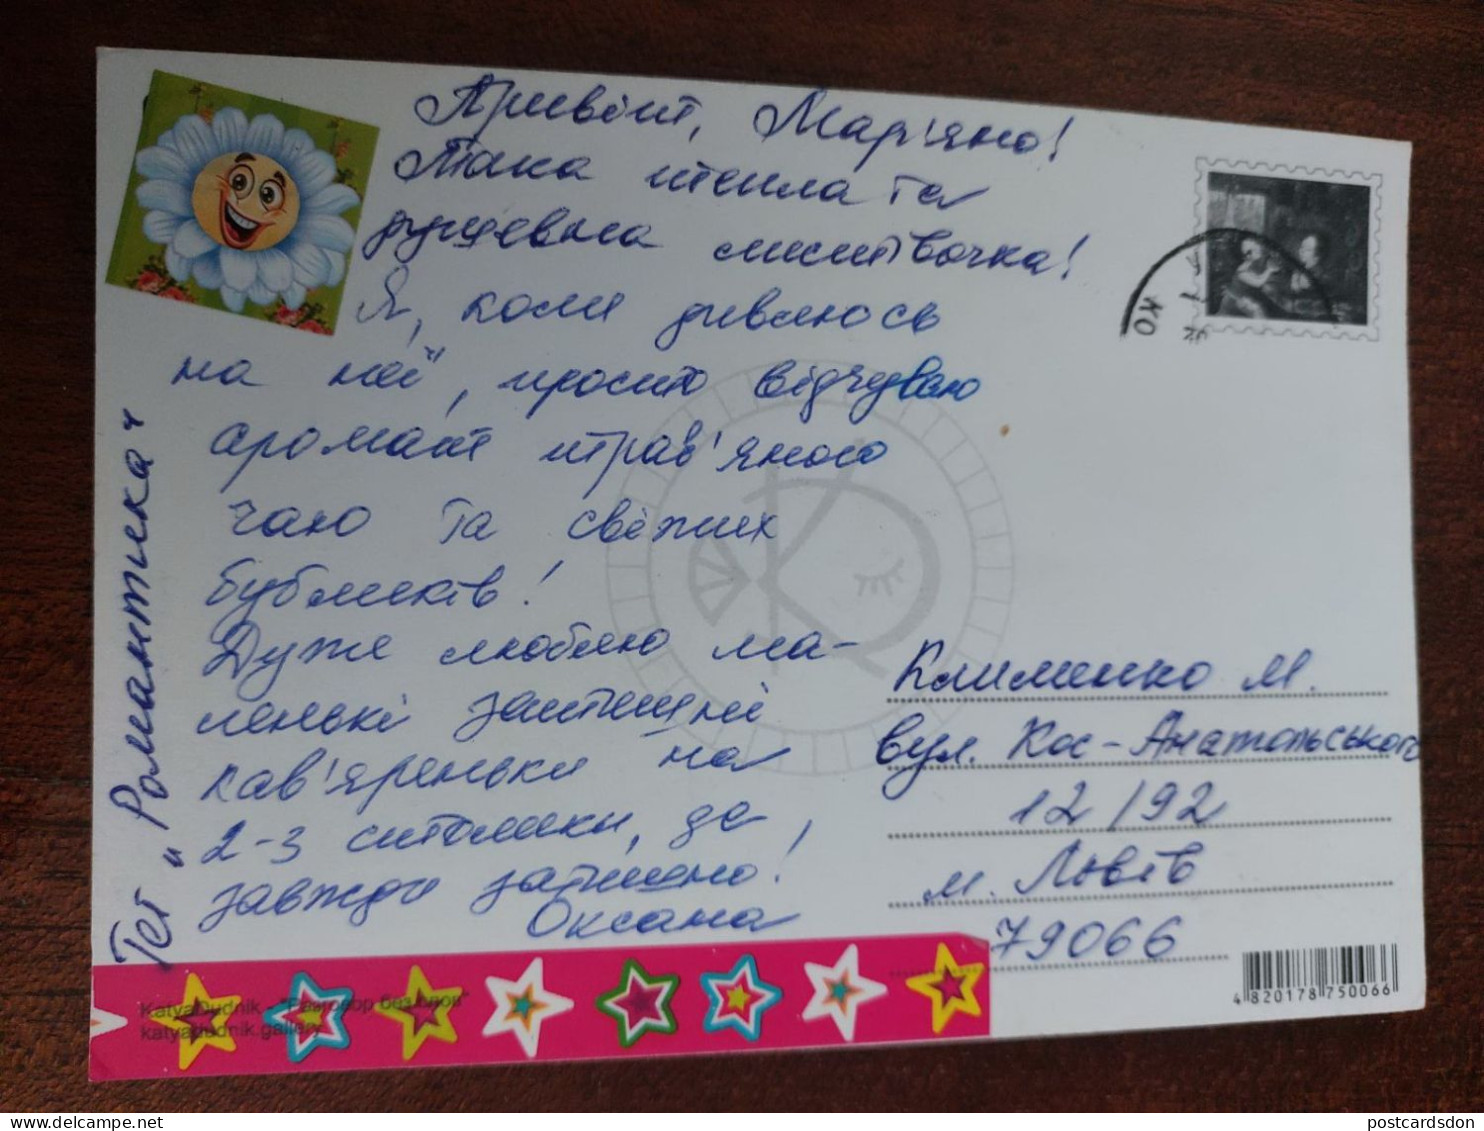 Привіт, Мар'яно!
Така тепла та
душевна листівочка!
Я, коли дивлюсь
на неї, просто відчуваю
аромат трав'яного
чаю та свіжих
бубликів!
Дуже люблю ма-
ленькі затишні
кав'яреньки на
2-3 столики, де
завжди затишно!
Оксана
Тег "Романтика"
Клименко М.
вул. Кос-Анатольського
12/92
м. Львів
79066
KatyaDudnik - "Разговор без слов"
katyadudnik.gallery
4 820178 750066
КО
postcardsdon